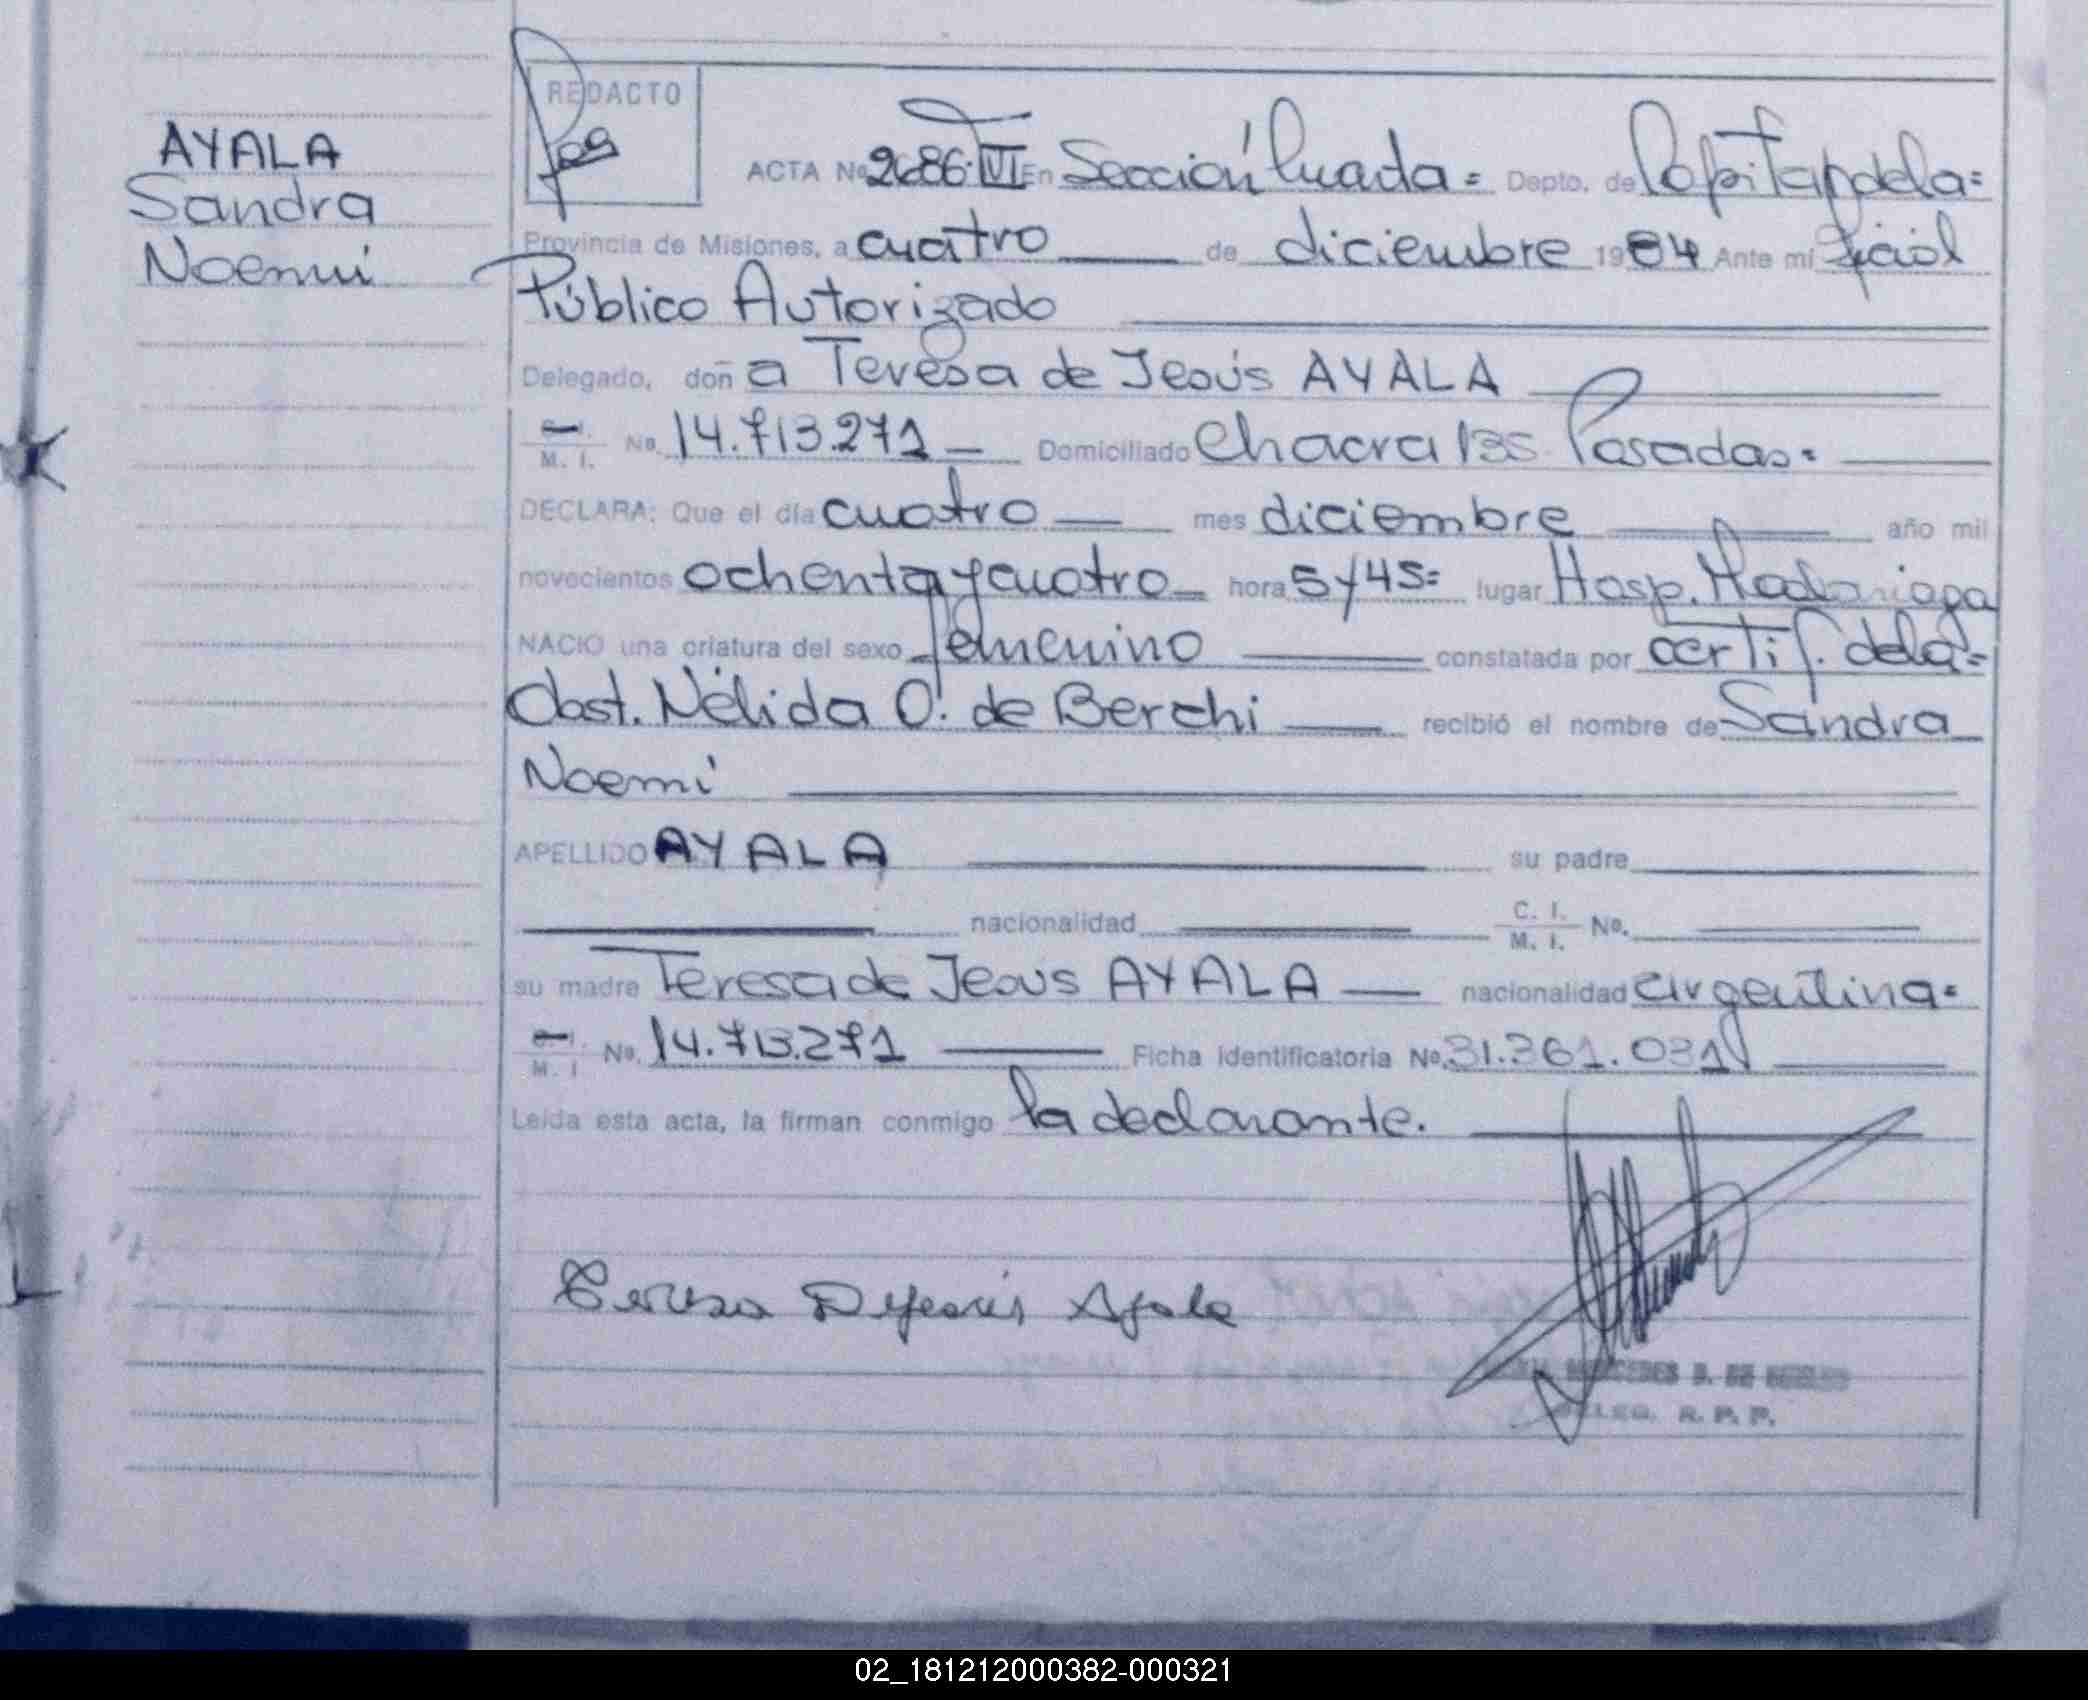 AYALA
Sandra
Noemi
REDACTO
ACTA No 2686. VI En Sección Cuarta = Depto. de Capital de la =
Provincia de Misiones, a cuatro de diciembre 1984 Ante mí Oficial
Público Autorizado
Delegado, doñ a Teresa de Jesús AYALA
M. I. No. 14.713.271 Domiciliado Chacra 135 Posadas =
DECLARA: Que el día cuatro mes diciembre año mil
novecientos ochenta y cuatro hora 5 y 45 = lugar Hosp. Madariaga
NACIO una criatura del sexo femenino constatada por certif. de la =
Obst. Nélida O. de Berchi recibió el nombre de Sandra
Noemí
APELLIDO AYALA su padre
nacionalidad C. I. M. I. No.
su madre Teresa de Jesús AYALA nacionalidad argentina =
M. I No. 14.713.271 Ficha identificatoria No. 31.361.031
Leída esta acta, la firman conmigo la declarante.
Teresa De Jesús Ayala
MERCEDES B. DE
DELEG. R. P. P.
02_181212000382-000321